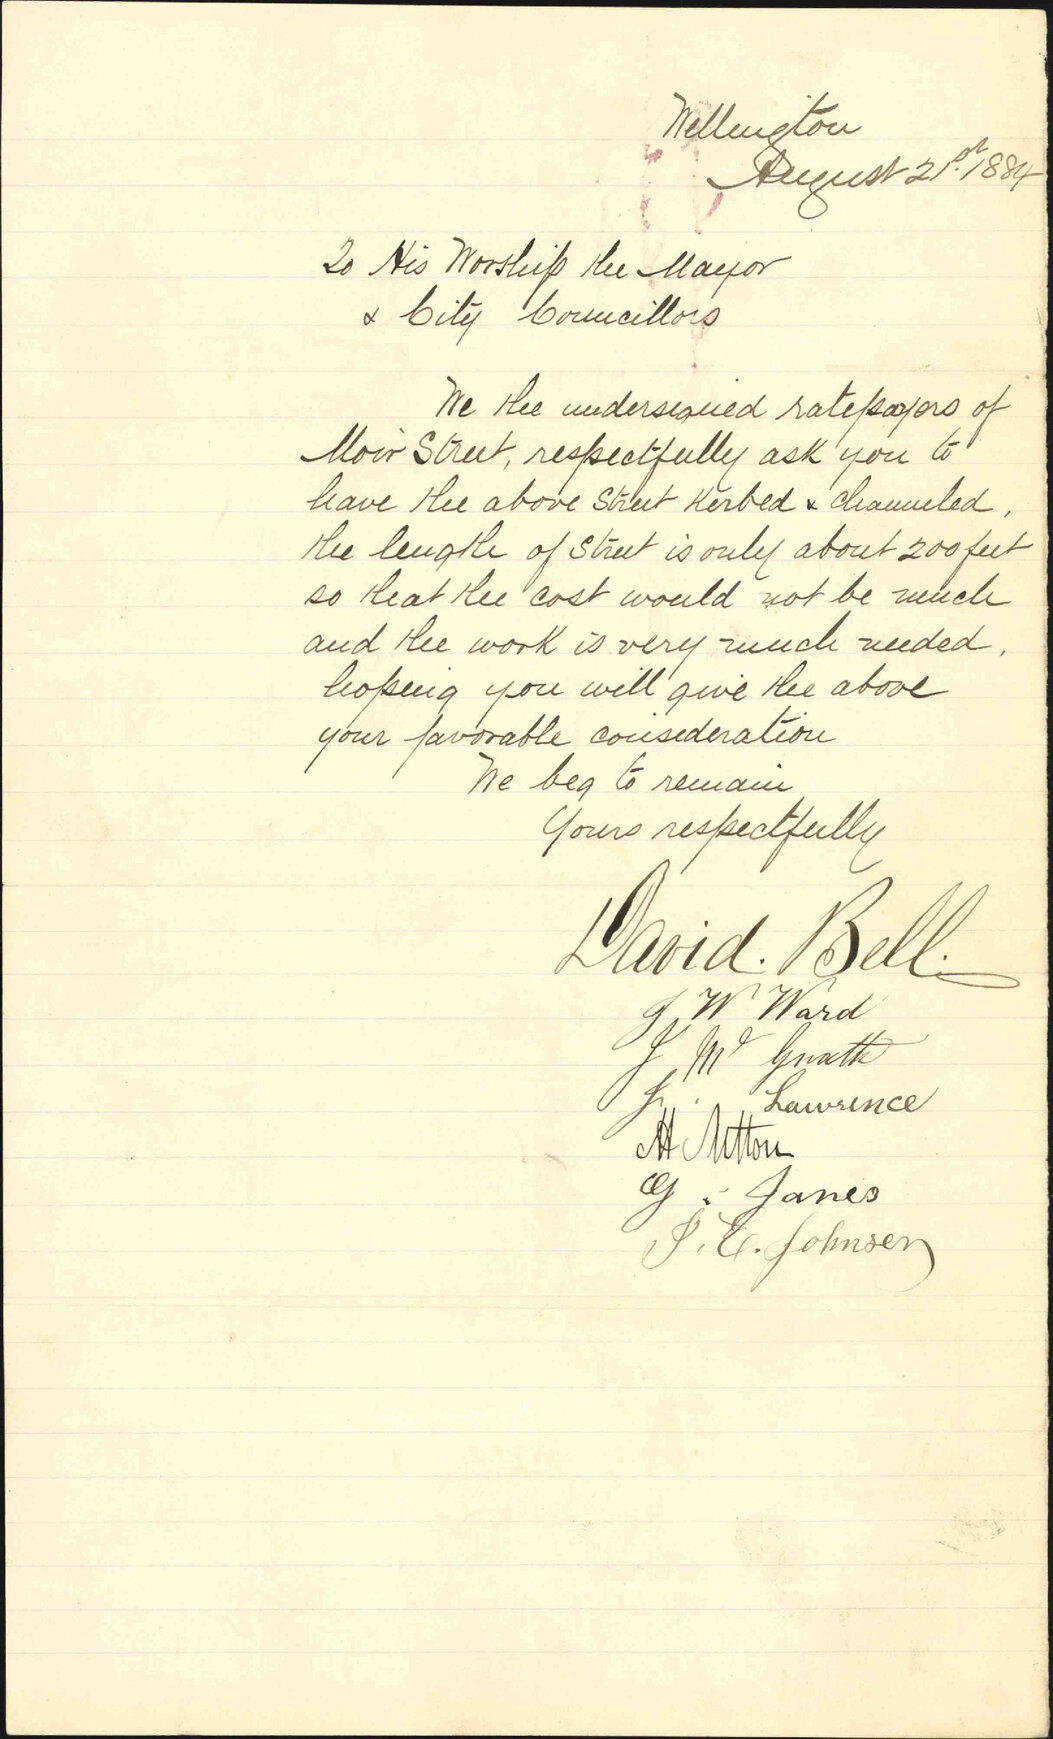 Wellington
August 21st. 1884
To His Worship the Mayor
& City Councillors
We the undersigned ratepayers of
Moir Street, respectfully ask you to
have the above Street Kerbed & channeled,
the length of Street is only about 200 feet
so that the cost would not be much
and the work is very much needed,
hoping you will give the above
your favorable consideration
We beg to remain
Yours respectfully
David. Bell.
J W Ward
J Mc Grath
J. Lawrence
H
G. Janes
J. C. Johnsen